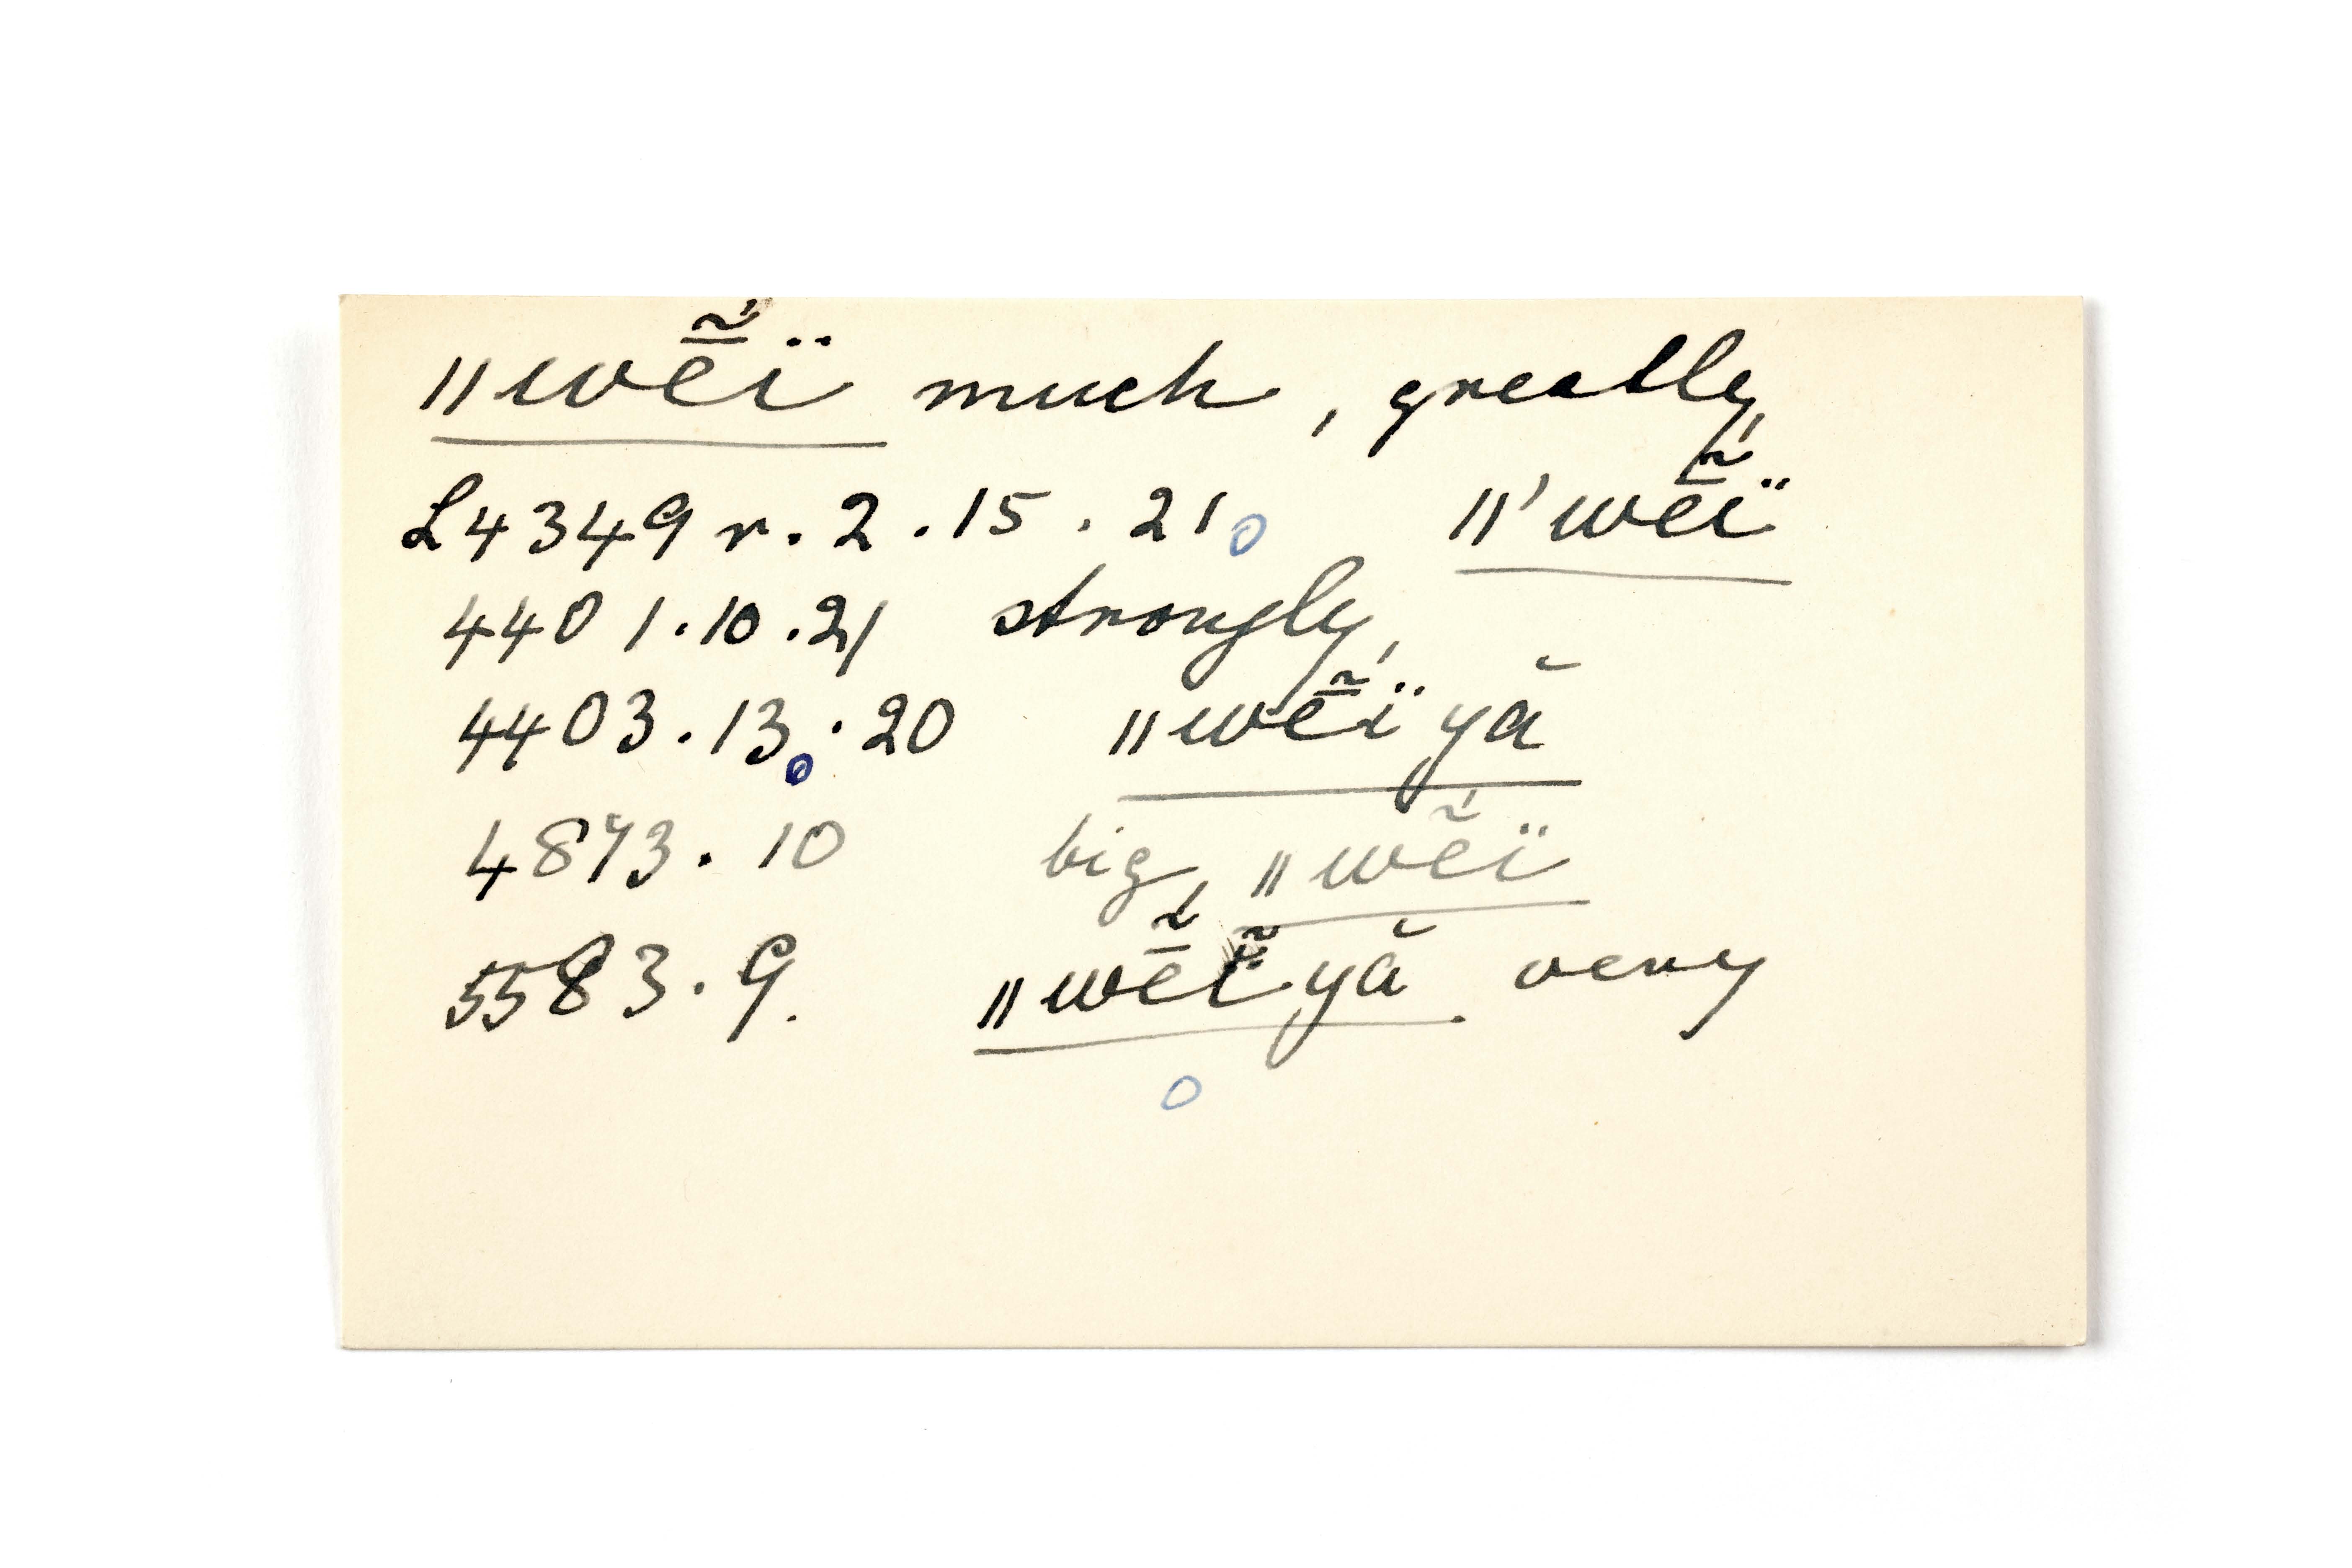 ǁwḗ̃ï much, greatly,
L4349 r. 2. 15. 21 ǁ'wḗ̃ï
4401. 10. 21 strongly,
4403. 13. 20 ǁwḗ̃ïyă
4873. 10 big, ǁwé̃ï
5583. 9. ǁwḗ̃ĩyă very